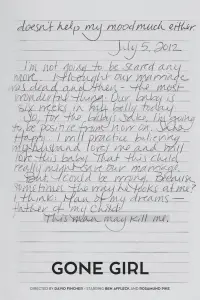 doesn't help my mood much either
July 5, 2012
I'm not going to be scared any
more. I thought our marriage
was dead and then - the most
wonderful thing. Our baby is
six weeks in my belly today
So, for the baby's sake, I'm going
to be positive from now on.
Happy. I will practice believing
my husband loves me and will
love this baby. That this child
really might save our marriage.
But I could be wrong. Because
sometimes, the way he looks at me?
I think: Man of my dreams -
father of my child:
This man may kill me.
GONE GIRL
DIRECTED BY DAVID FINCHER STARRING BEN AFFLECK AND ROSAMUND PIKE